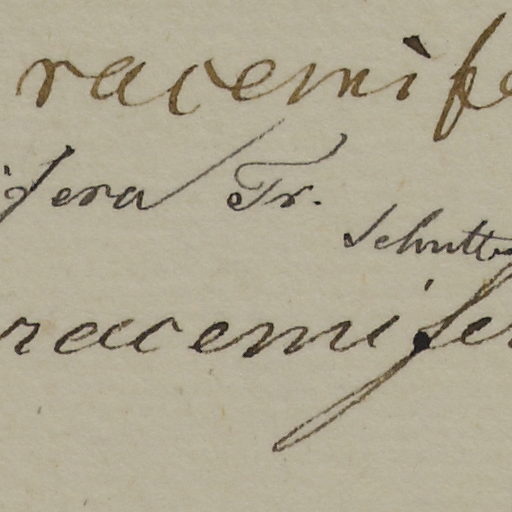 racemife
ifera Tr.
Schutt
racemifer